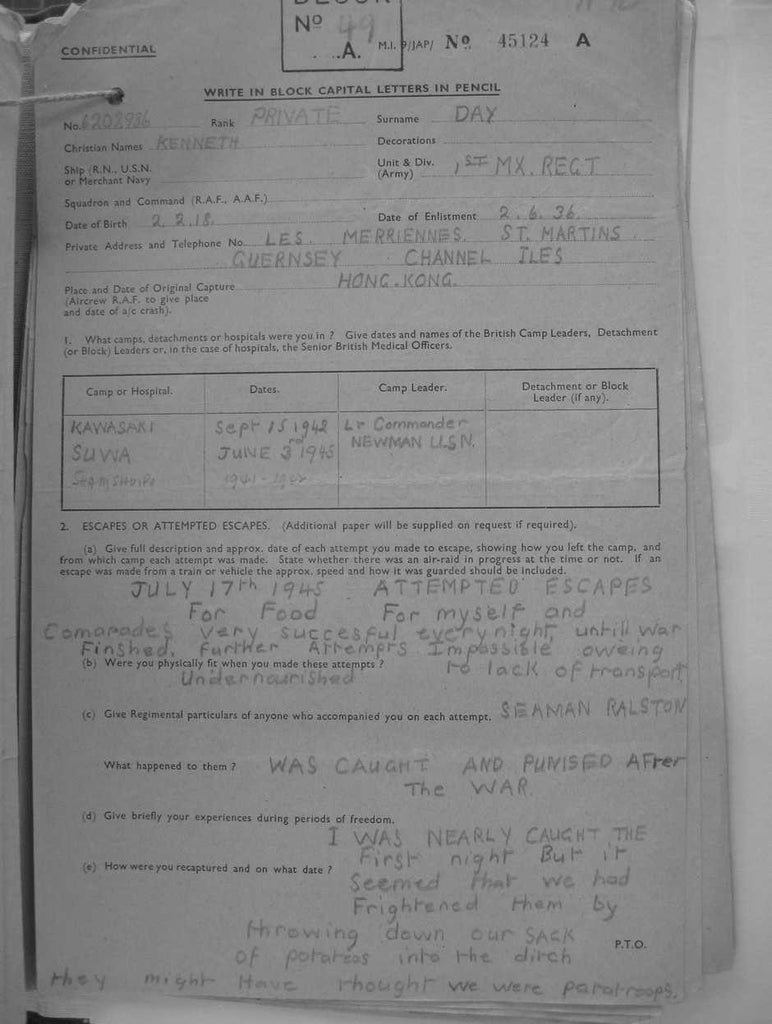 BLOCK
Nº 49
A.
M.I. 9/JAP/ Nº 45124 A
CONFIDENTIAL
WRITE IN BLOCK CAPITAL LETTERS IN PENCIL
No. 6202986 Rank PRIVATE Surname DAY
Christian Names KENNETH Decorations
Ship (R.N., U.S.N. or Merchant Navy
Unit & Div. (Army) 1ST MX. REGT
Squadron and Command (R.A.F., A.A.F.)
Date of Birth 2.2.18. Date of Enlistment 2.6.36.
Private Address and Telephone No. LES. MERRIENNES. ST. MARTINS
GUERNSEY CHANNEL ILES
Place and Date of Original Capture HONG.KONG.
(Aircrew R.A.F. to give place
and date of a/c crash).
1. What camps, detachments or hospitals were you in ? Give dates and names of the British Camp Leaders, Detachment
(or Block) Leaders or, in the case of hospitals, the Senior British Medical Officers.
Camp or Hospital. Dates. Camp Leader. Detachment or Block
Leader (if any).
KAWASAKI Sept 15 1942 Lt Commander
NEWMAN U.S.N.
SUWA JUNE 3rd 1945
1941-1942
2. ESCAPES OR ATTEMPTED ESCAPES. (Additional paper will be supplied on request if required).
(a) Give full description and approx. date of each attempt you made to escape, showing how you left the camp, and
from which camp each attempt was made. State whether there was an air-raid in progress at the time or not. If an
escape was made from a train or vehicle the approx. speed and how it was guarded should be included.
JULY 17th 1945 ATTEMPTED ESCAPES
For Food For myself and
Comarades very succesful every night, untill war
Finshed. further Attempts Impossible oweing
to lack of transport
(b) Were you physically fit when you made these attempts ?
Undernourished
(c) Give Regimental particulars of anyone who accompanied you on each attempt. SEAMAN RALSTON
What happened to them ? WAS CAUGHT AND PUNISED AFter
The WAR.
(d) Give briefly your experiences during periods of freedom.
I WAS NEARLY CAUGHT THE
First night But it
(e) How were you recaptured and on what date ?
Seemed that we had
Frightened them by
throwing down our SACK
of potatoes into the ditch
P.T.O.
they might Have thought we were paratroops.